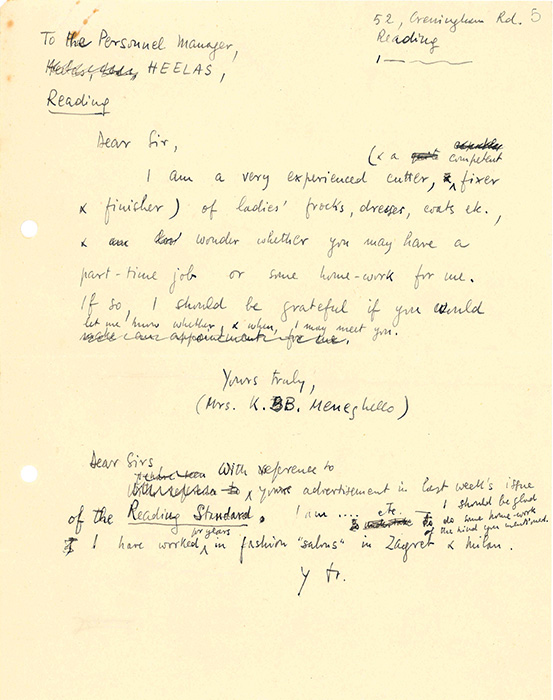 52, Creningham Rd. 5
To the Personnel Manager,
Reading
HEELAS,
Reading
Dear Sir,
(& a competent
I am a very experienced cutter, fixer
& finisher) of ladies' frocks, dresses, coats etc.,
& wonder whether you may have a
part-time job or some home-work for me.
If so, I should be grateful if you would
let me know whether, & when, I may meet you.
make an appointment for me.
Yours truly,
(Mrs. K. B. Meneghello)
Dear Sirs
With reference to
your advertisement in last week's issue
of the Reading Standard. I am .... etc. — I should be glad
to do some home-work
of the kind you mentioned.
for years
I have worked in fashion "salons" in Zagreb & Milan.
Y tr.